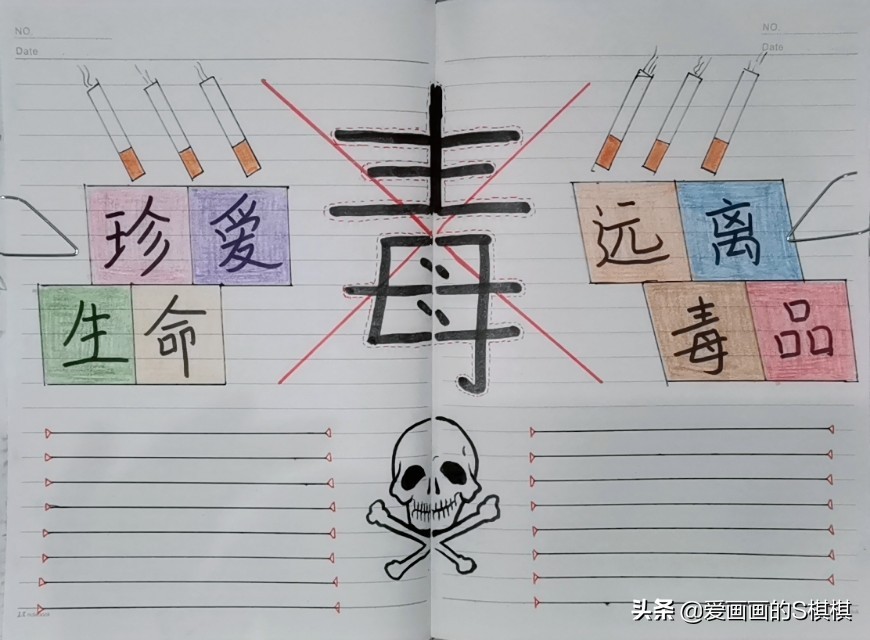 NO.
Date
NO.
Date
毒
珍爱
生命
远离
毒品
头条 @爱画画的S棋棋